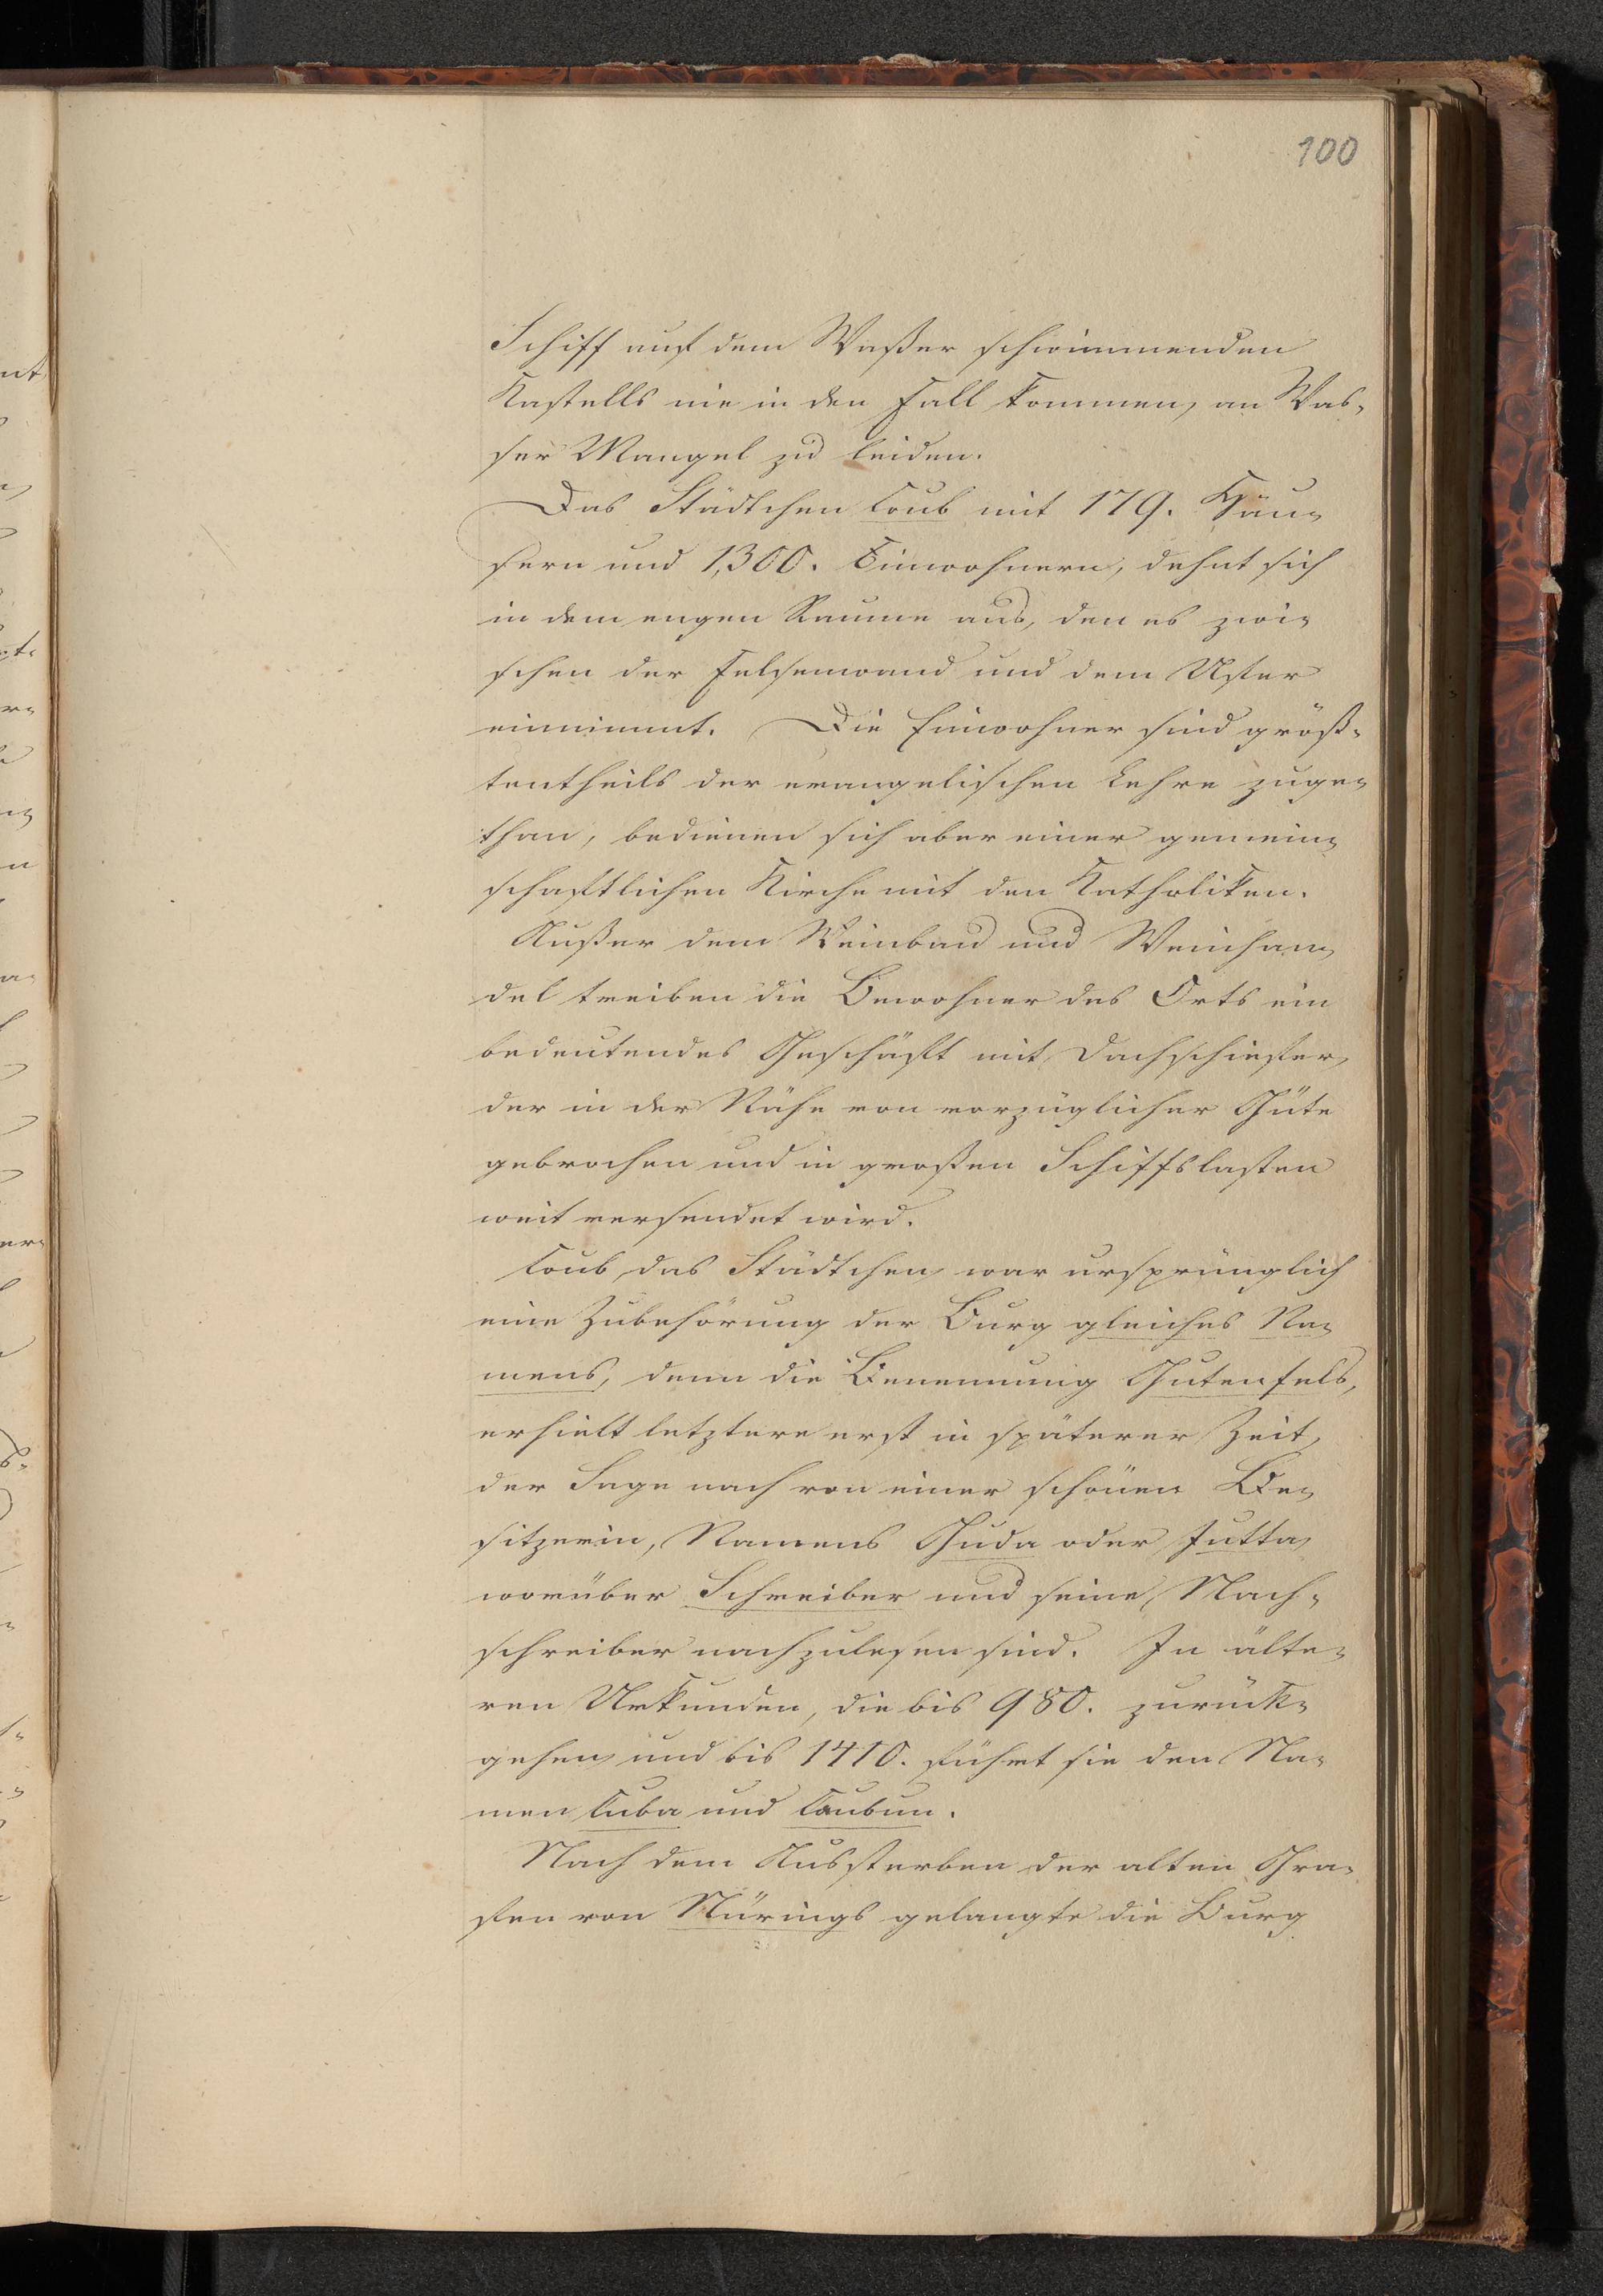 100
Schiff auf dem Waßer schwimmenden
Kastells nie in den Fall kommen, an Was-
ser Mangel zu leiden.
Das Städtchen Caub mit 179. Häu-
sern und 1,300. Einwohnern, dehnt sich
in dem engen Raume aus, den es zwi-
schen der Felsenwand und dem Ufer
einnimmt. Die Einwohner sind größ-
tentheils der evangelischen Lehre zuge-
than, bedienen sich aber einer gemein-
schaftlichen Kirche mit den Katholiken.
Außer dem Weinbau und Weinhan-
del treiben die Bewohner des Orts ein
bedeutendes Geschäft mit Dachschiefer,
der in der Nähe von vorzüglicher Güte
gebrochen und in großen Schiffslasten
weit versendet wird.
Caub, das Städtchen, war ursprünglich
eine Zubehörung der Burg gleiches Na-
mens, denn die Benennung Gutenfels,
erhielt letztere erst in späterer Zeit,
der Sage nach von einer schönen Be-
sitzerin, Namens Guda oder Jutta,
worüber Schreiber und seine Nach-
schreiber nachzulesen sind. In älte-
ren Urkunden, die bis 980. zurück-
gehen, und bis 1410. führt sie den Na-
men Cuba und Caubun.
Nach dem Aussterben der alten Gra-
fen von Nürings gelangte die Burg